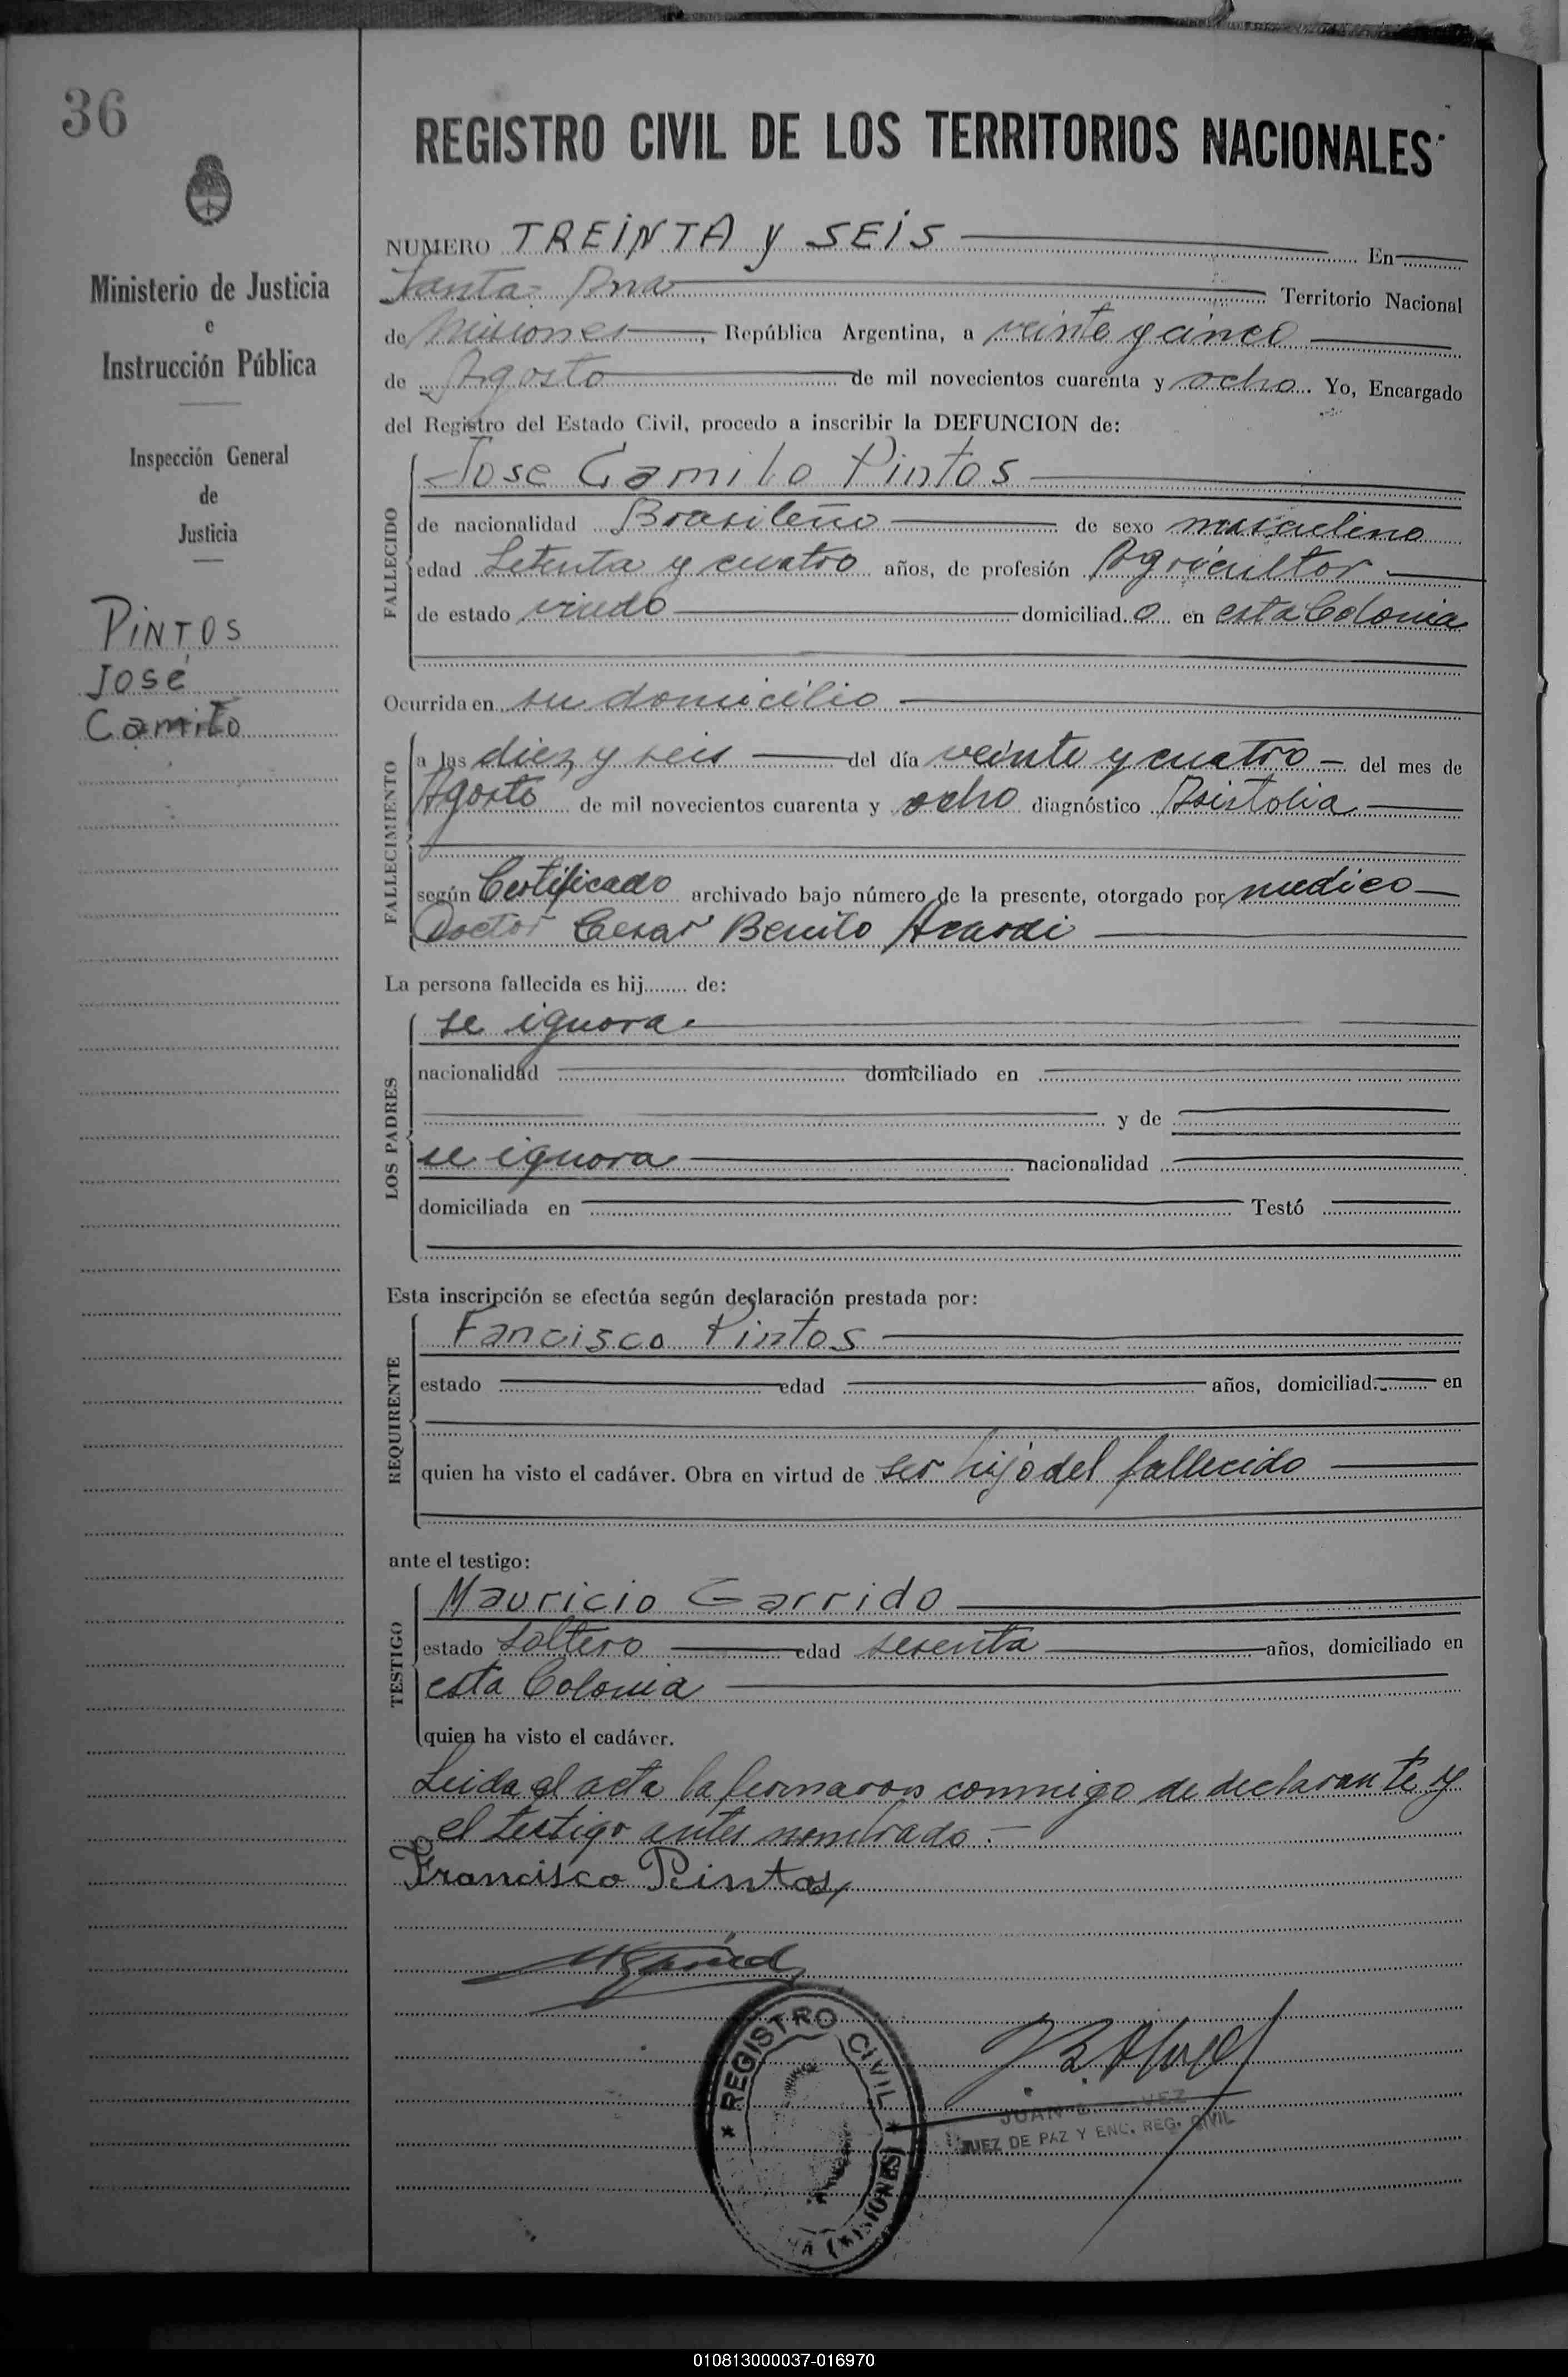 36
Ministerio de Justicia
e
Instrucción Pública
Inspección General
de
Justicia
PINTOS
José
Camilo
REGISTRO CIVIL DE LOS TERRITORIOS NACIONALES
NUMERO TREINTA y SEIS En
Santa Ana Territorio Nacional
de Misiones, República Argentina, a veinte y cinco
de Agosto de mil novecientos cuarenta y ocho. Yo, Encargado
del Registro del Estado Civil, procedo a inscribir la DEFUNCION de:
FALLECIDO
Jose Camilo Pintos
de nacionalidad Brasileño de sexo masculino
edad Setenta y cuatro años, de profesión Agricultor
de estado viudo domiciliad o en esta Colonia
Ocurrida en su domicilio
FALLECIMIENTO
a las diez y seis del día veinte y cuatro del mes de
Agosto de mil novecientos cuarenta y ocho diagnóstico Asistolia
según Certificado archivado bajo número de la presente, otorgado por medico
Doctor Cesar Benito Acardi
La persona fallecida es hij........ de:
LOS PADRES
se ignora.
nacionalidad domiciliado en
y de
se ignora nacionalidad
domiciliada en Testó
Esta inscripción se efectúa según declaración prestada por:
REQUIRENTE
Fancisco Pintos
estado edad años, domiciliad en
quien ha visto el cadáver. Obra en virtud de ser hijo del fallecido
ante el testigo:
TESTIGO
Mauricio Garrido
estado Soltero edad sesenta años, domiciliado en
esta Colonia
quien ha visto el cadáver.
Leida el acta la firmaron conmigo de declarante y
el testigo antes nombrado.-
Francisco Pintos
REGISTRO CIVIL
(MISIONES)
JUAN
JUEZ DE PAZ Y ENC. REG. CIVIL
010813000037-016970